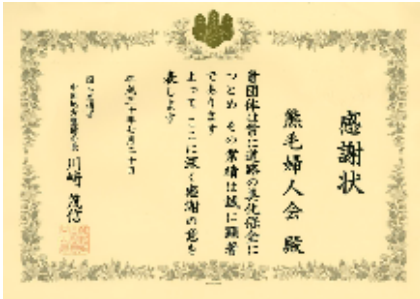 感謝状
熊毛婦人会 殿
貴団体は常に道路の美化保全に
つとめ その業績は誠に顕著
であります
よって ここに深く感謝の意を
表します
平成二十年七月二十日
国土交通省
中国地方整備局長 川﨑 茂信